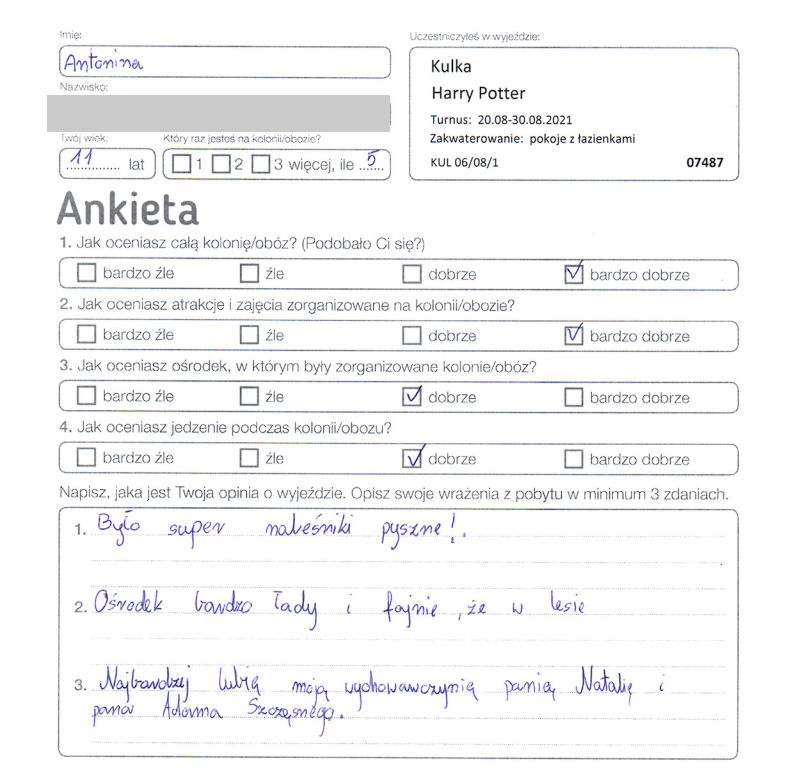 Imię:
Antonina
Nazwisko:
Twój wiek:
11 lat
Który raz jesteś na kolonii/obozie?
1 2 3 więcej, ile 5
Uczestniczyłeś w wyjeździe:
Kulka
Harry Potter
Turnus: 20.08-30.08.2021
Zakwaterowanie: pokoje z łazienkami
KUL 06/08/1 07487
Ankieta
1. Jak oceniasz całą kolonię/obóz? (Podobało Ci się?)
bardzo źle źle dobrze bardzo dobrze
2. Jak oceniasz atrakcje i zajęcia zorganizowane na kolonii/obozie?
bardzo źle źle dobrze bardzo dobrze
3. Jak oceniasz ośrodek, w którym były zorganizowane kolonie/obóz?
bardzo źle źle dobrze bardzo dobrze
4. Jak oceniasz jedzenie podczas kolonii/obozu?
bardzo źle źle dobrze bardzo dobrze
Napisz, jaka jest Twoja opinia o wyjeździe. Opisz swoje wrażenia z pobytu w minimum 3 zdaniach.
1. Było super naleśniki pyszne!.
2. Ośrodek bardzo łady i fajnie, że w lesie
3. Najbardzej lubię moją wychowawczynię panią Natalię i
pana Adama Szczęsnego.